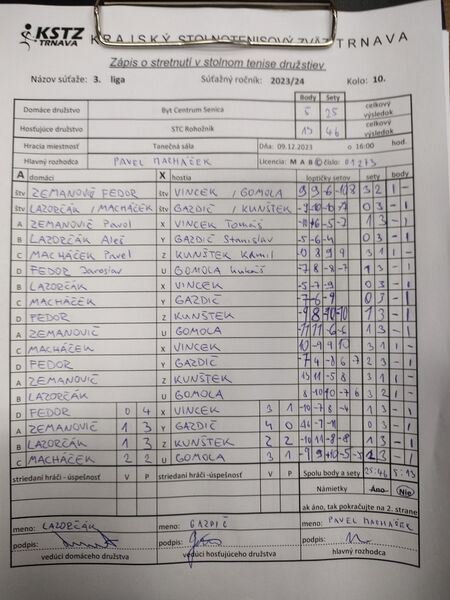 KSTZ TRNAVA KRAJSKÝ STOLNOTENISOVÝ ZVÄZ TRNAVA
Zápis o stretnutí v stolnom tenise družstiev
Názov súťaže: 3. liga Súťažný ročník: 2023/24 Kolo: 10.
Body Sety celkový výsledok
Domáce družstvo Byt Centrum Senica 5 25
Hosťujúce družstvo STC Rohožník 13 46 celkový výsledok
Hracia miestnosť Tanečná sála Dňa: 09.12.2023 o 16:00 hod.
Hlavný rozhodca PAVEL MACHÁČEK Licencia: M A B C číslo: 01273
A domáci X hostia loptičky setov sety body
štv ZEMANOVIČ FEDOR štv VINCEK / GOMOLA 3 2 1 -
štv LAZORČÁK / MACHÁČEK štv GAZDIČ / KUNŠTEK 0 3 - 1
A ZEMANOVIČ Pavol X VINCEK Tomáš 1 3 - 1
B LAZORČÁK Aleš Y GAZDIČ Stanislav -5 -6 -4 0 3 - 1
C MACHÁČEK Pavel Z KUNŠTEK Kamil 3 1 1 -
D FEDOR Jaroslav U GOMOLA Lukáš -7 8 -8 -7 1 3 - 1
B LAZORČÁK X VINCEK -5 -7 -9 0 3 - 1
C MACHÁČEK Y GAZDIČ -7 -6 -9 0 3 - 1
D FEDOR Z KUNŠTEK -9 8 -10 -10 1 3 - 1
A ZEMANOVIČ U GOMOLA 1 3 - 1
C MACHÁČEK X VINCEK 10 -9 9 10 3 1 1 -
D FEDOR Y GAZDIČ -7 4 -8 6 -7 2 3 - 1
A ZEMANOVIČ Z KUNŠTEK 3 1 1 -
B LAZORČÁK U GOMOLA 3 2 1 -
D FEDOR 0 4 X VINCEK 3 1 -10 -7 8 -4 1 3 - 1
A ZEMANOVIČ 1 3 Y GAZDIČ 4 0 0 3 - 1
B LAZORČÁK 1 3 Z KUNŠTEK 2 2 -10 11 -8 -8 1 3 - 1
C MACHÁČEK 2 2 U GOMOLA 3 1 3 - 1
striedaní hráči - úspešnosť V P striedaní hráči - úspešnosť V P Spolu body a sety 25:46 5:13
Námietky Áno Nie
ak áno, tak pokračujte na 2. strane
meno: LAZORČÁK meno: GAZDIČ meno: PAVEL MACHÁČEK
podpis: podpis: podpis:
vedúci domáceho družstva vedúci hosťujúceho družstva hlavný rozhodca